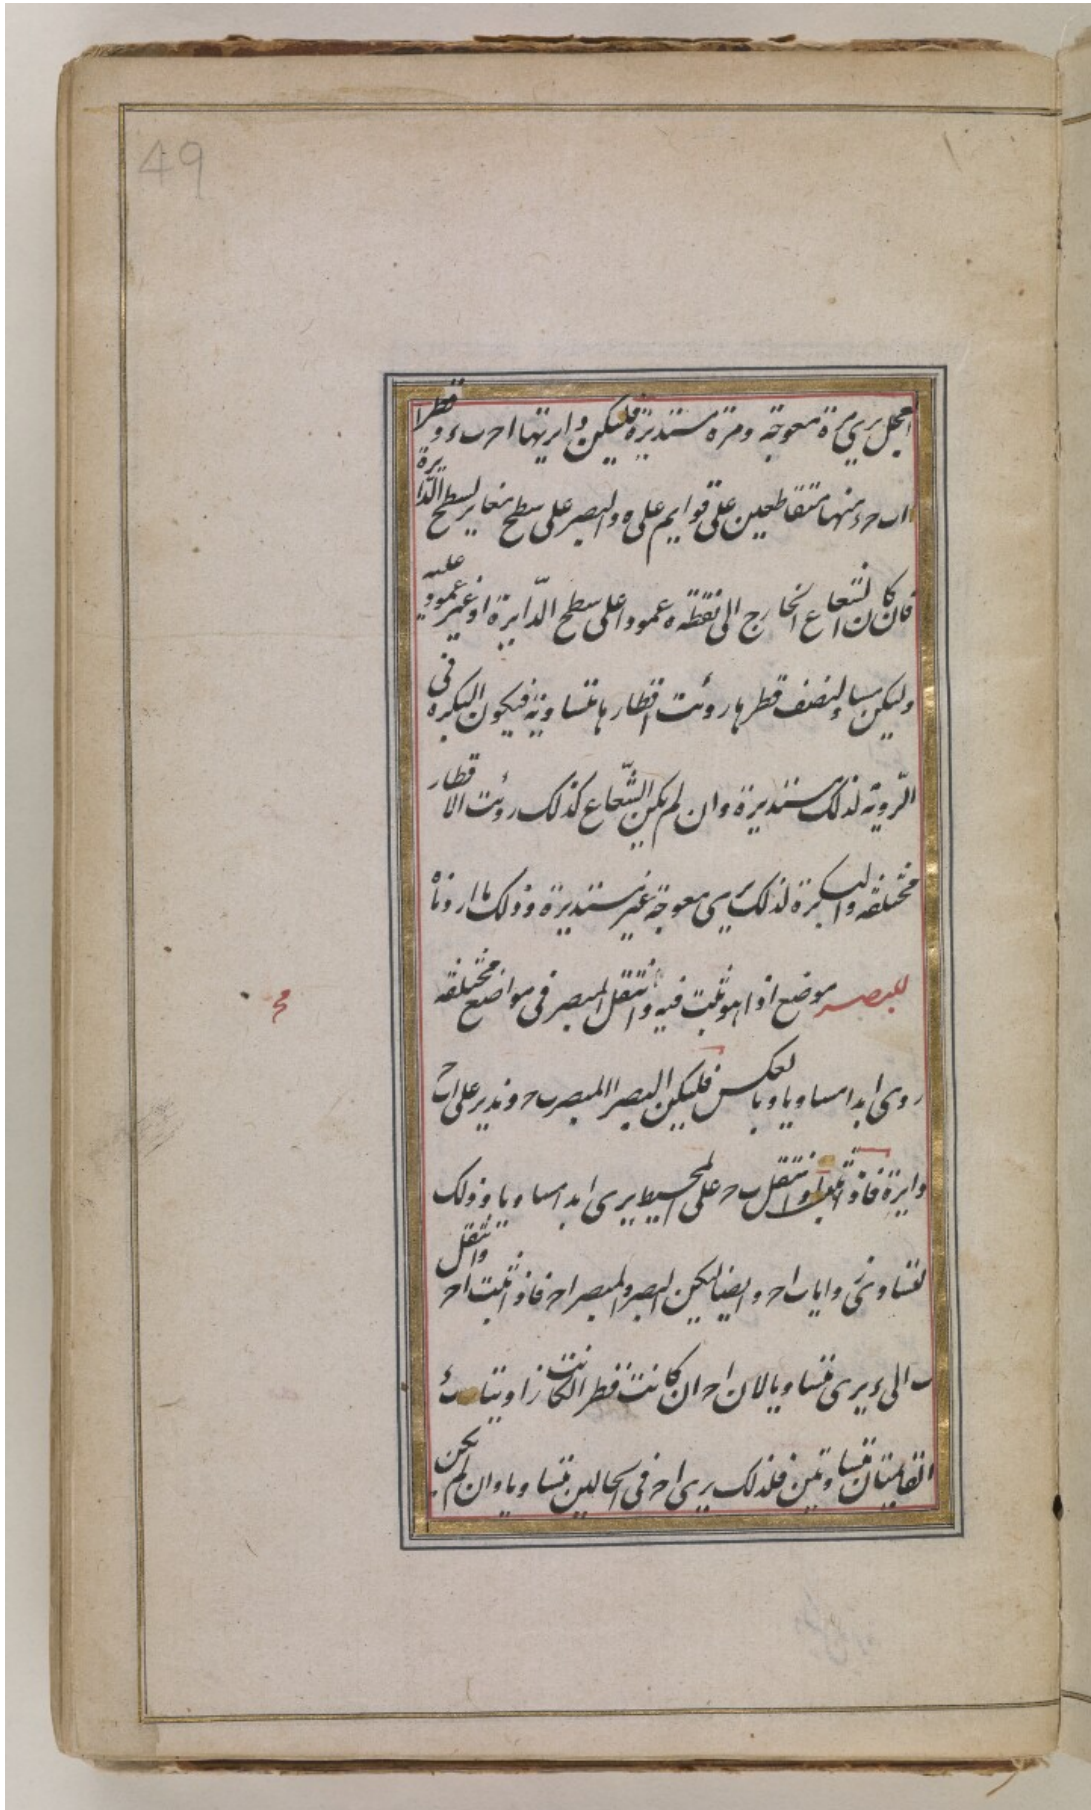 49
العجل يرى مرة معوجة ومرة مستديرة فليكن دايرتها ا ح ب ء وقطرا
ا ب ح ء منها متقاطعين على قوايم على ه والبصر على سطح مغاير لسطح الدايرة
فان كان الشعاع الخارج الى نقطة ه عمودا على سطح الدّايرة او غير عمود عليه
وليكن مساو لنصف قطرها رؤيت اقطارها متساوية فيكون البكره فى
الرّوية لذلك مستديرة وان لم يكن الشّعاع كذلك رؤيت الاقطار
مختلفه والبكرة لذلك يرى معوجة غير مستديرة وذلك ما اردناه
للبصر موضع اذا هو ثبت فيه وانتقل المبصر فى مواضع مختلفه
روى ابدا مساويا وبالعكس فليكن البصر ا المبصر ب ح وندير على ا ب ح
دايرة فاذا ثبت ا وانتقل ب ح على المحيط يرى ابدا مساويا وذلك
لتساوى زوايا ب ا ح وايضا ليكن البصر ب والمبصر ا ح فاذا ثبت ا ح وانتقل
ب الى ء يرى متساويا لان ا ح ان كانت قطرا كانت زاويتا ب ء
القايمتان متساوتين فلذلك يرى ا ح فى الحالين متساويا وان لم يكن